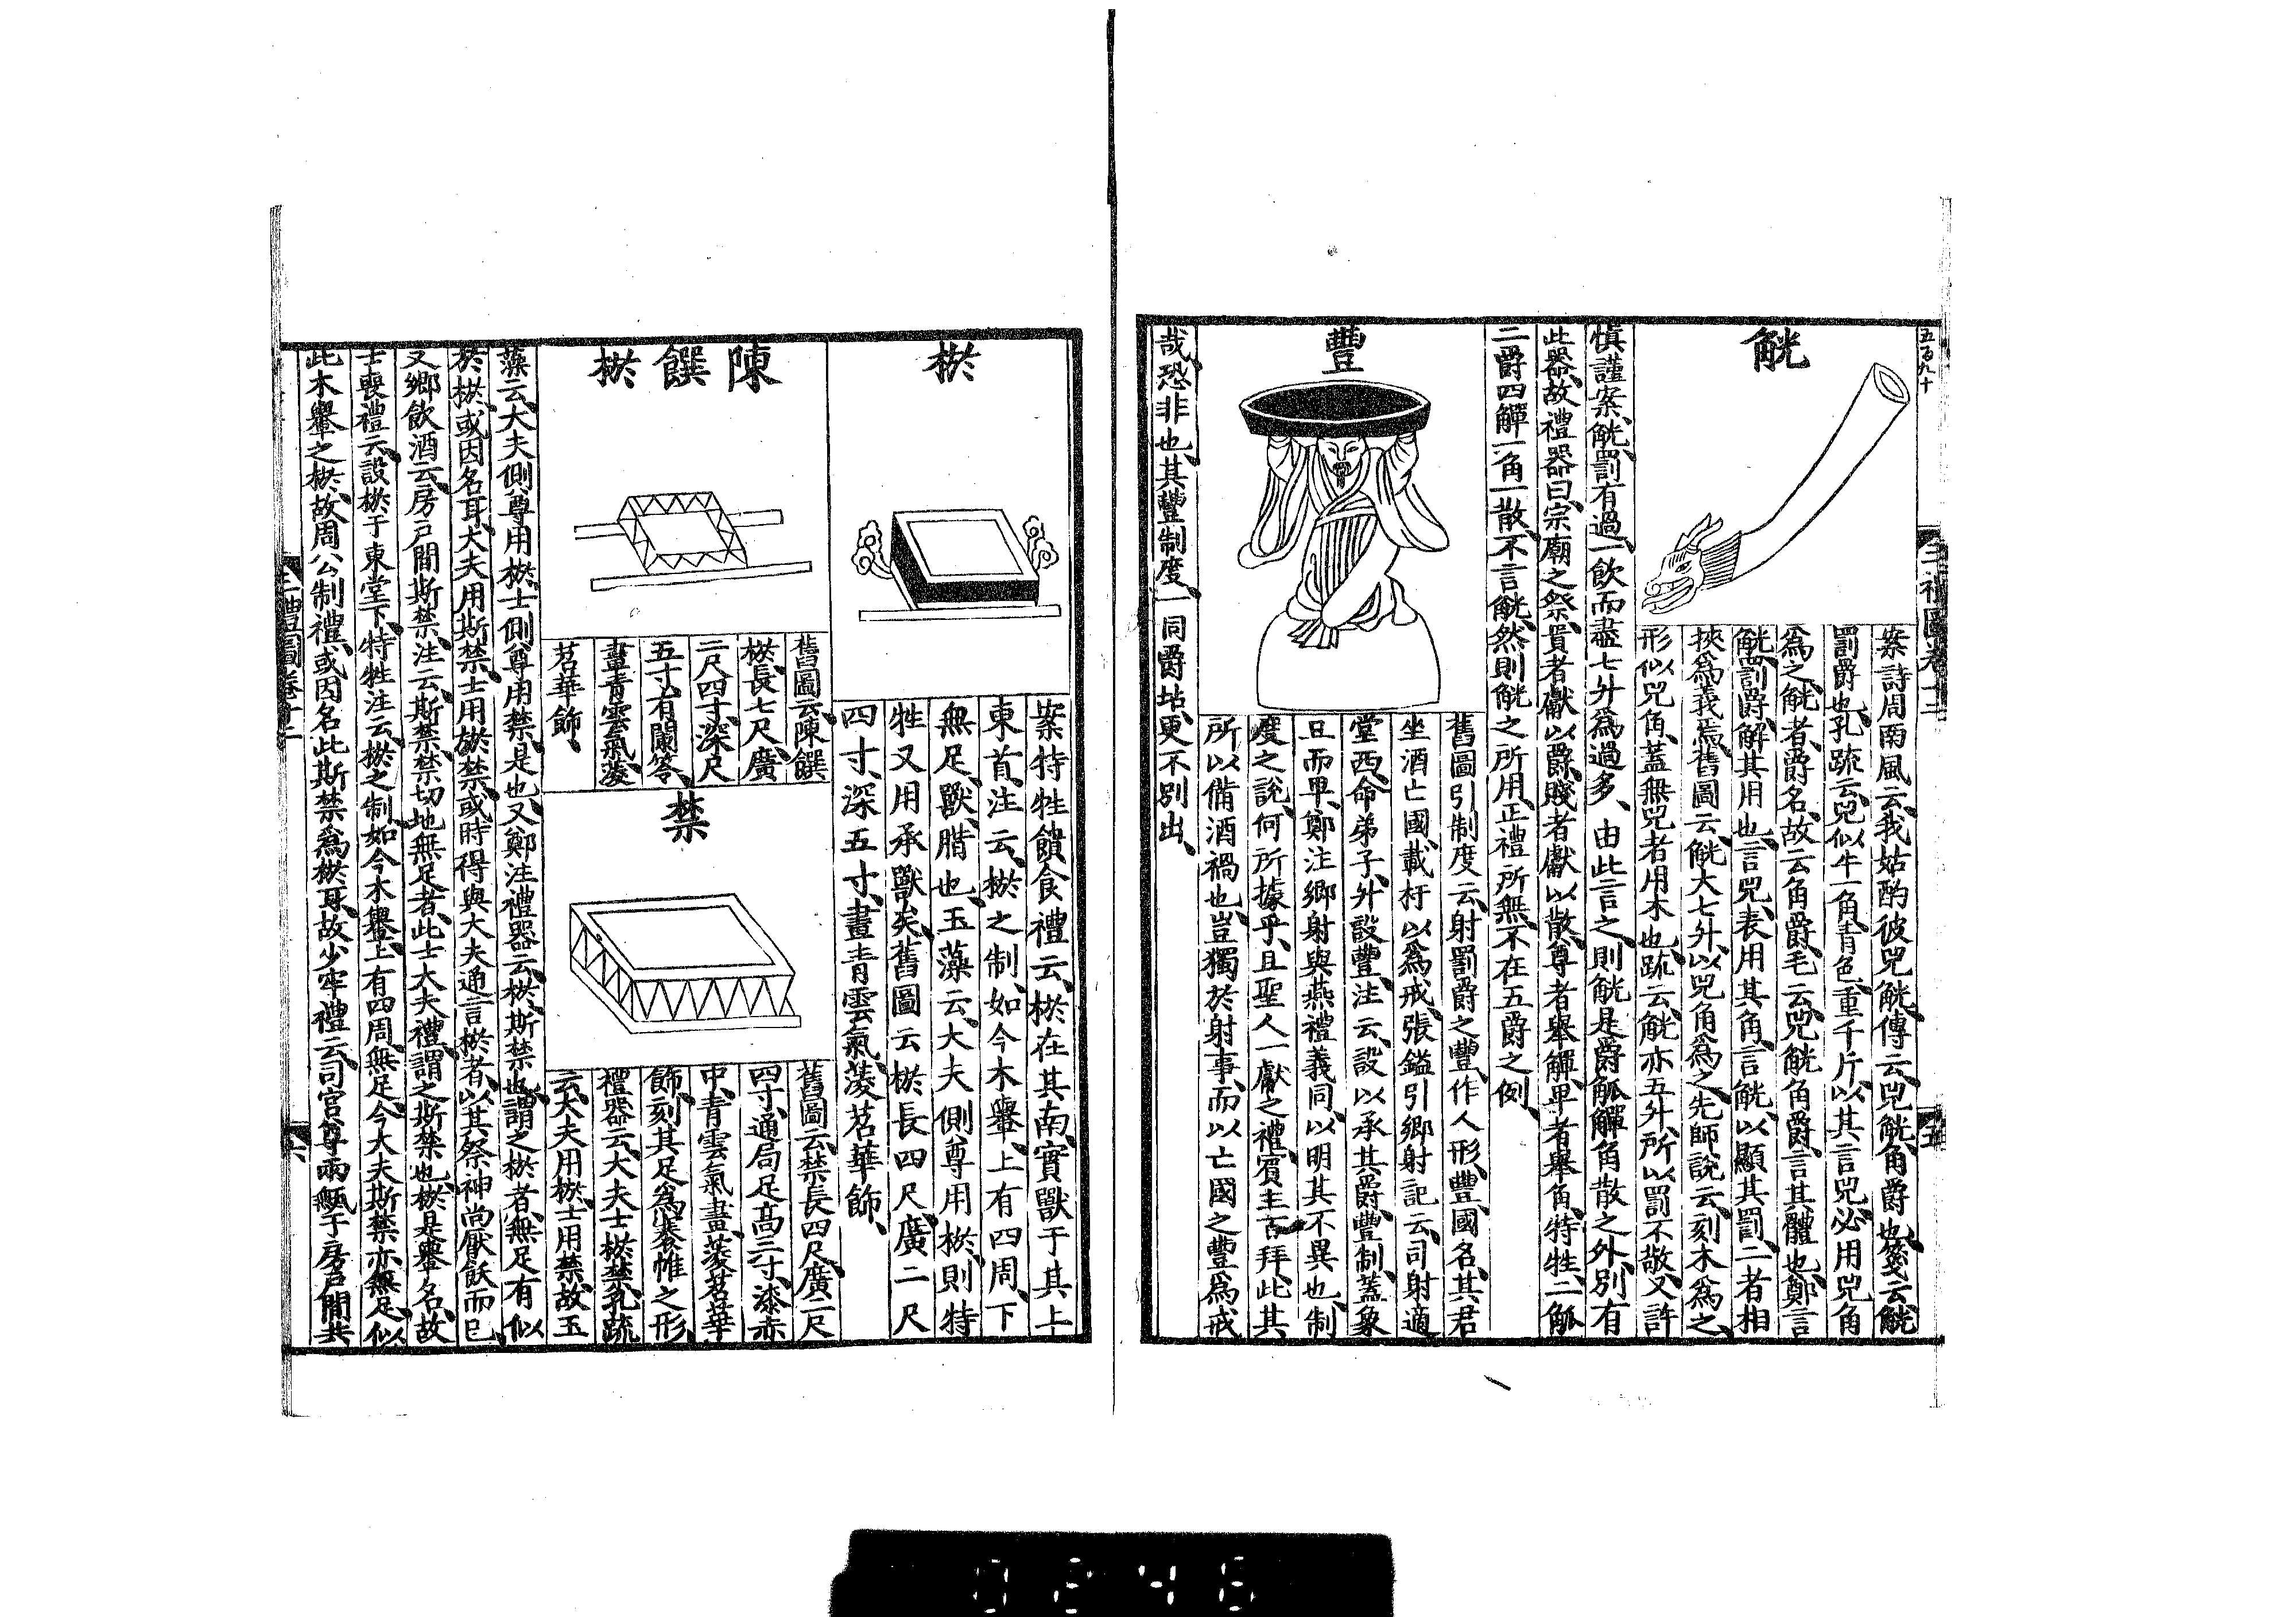 五百九十
觥
案詩周南風云、我姑酌彼兕觥、傳云、兕觥、角爵也、箋云、觥
罰爵也、孔疏云、兕似牛一角、青色、重千斤、以其言兕、必用兕角
爲之、觥者、爵名、故云角爵、毛云、兕觥角爵、言其體也、鄭言
觥罰爵、解其用也、言兕、表用其角、言觥、以顯其罰、二者相
挾爲義焉、舊圖云、觥大七升、以兕角爲之、先師說云、刻木爲之、
形似兕角、蓋無兕者用木也、疏云、觥亦五升、所以罰不敬、又許
慎謹案、觥罰有過、一飲而盡七升爲過多、由此言之、則觥是爵觚觶角散之外、別有
此器、故禮器曰、宗廟之祭、貴者獻以爵、賤者獻以散、尊者舉觶、卑者舉角、特牲二觚
二爵四觶一角一散、不言觥、然則觥之所用、正禮所無、不在五爵之例、
豐
舊圖引制度云、射罰爵之豐、作人形、豐、國名、其君
坐酒亡國、載杅以爲戒、張鎰引鄉射記云、司射適
堂西、命弟子、升設豐、注云、設以承其爵、豐制、蓋象
豆而卑、鄭注鄉射與燕禮義同、以明其不異也、制
度之說、何所據乎、且聖人一獻之禮、賓主百拜、此其
所以備酒禍也、豈獨於射事、而以亡國之豐爲戒
哉、恐非也、其豐制度、一同爵坫、更不別出、
三禮圖卷十二
五
棜
案特牲饋食禮云、棜在其南、實獸于其上
東首、注云、棜之制、如今木轝、上有四周、下
無足、獸、腊也、玉藻云、大夫側尊用棜、則特
牲又用承獸矣、舊圖云棜長四尺、廣二尺
四寸、深五寸、畫青雲氣、菱苕華飾、
陳饌棜
舊圖云、陳饌
棜、長七尺、廣
二尺四寸、深尺
五寸、有闌笭、
畫青雲氣、菱
苕華飾、
禁
舊圖云、禁長四尺、廣二尺
四寸、通局足高三寸、漆赤
中、青雲氣畫、菱苕華
飾、刻其足爲褰帷之形
禮器云、大夫士棜禁、孔疏
云、大夫用棜、士用禁、故玉
藻云、大夫側尊用棜、士側尊用禁、是也、又鄭注禮器云、棜、斯禁也、謂之棜者、無足有似
於棜、或因名耳、大夫用斯禁、士用棜禁、或時得與大夫通言棜者、以其祭神尚厭飫而已、
又鄉飲酒云、房戶間斯禁、注云、斯禁、禁切地無足者、此士大夫禮、謂之斯禁也、棜是轝名、故
士喪禮云、設棜于東堂下、特牲注云、棜之制、如今木轝、上有四周、無足、今大夫斯禁、亦無足、似
此木轝之棜、故周公制禮、或因名此斯禁爲棜耳、故少牢禮云、司宮尊兩甒于房戶間、共
三禮圖卷十二
六
0246